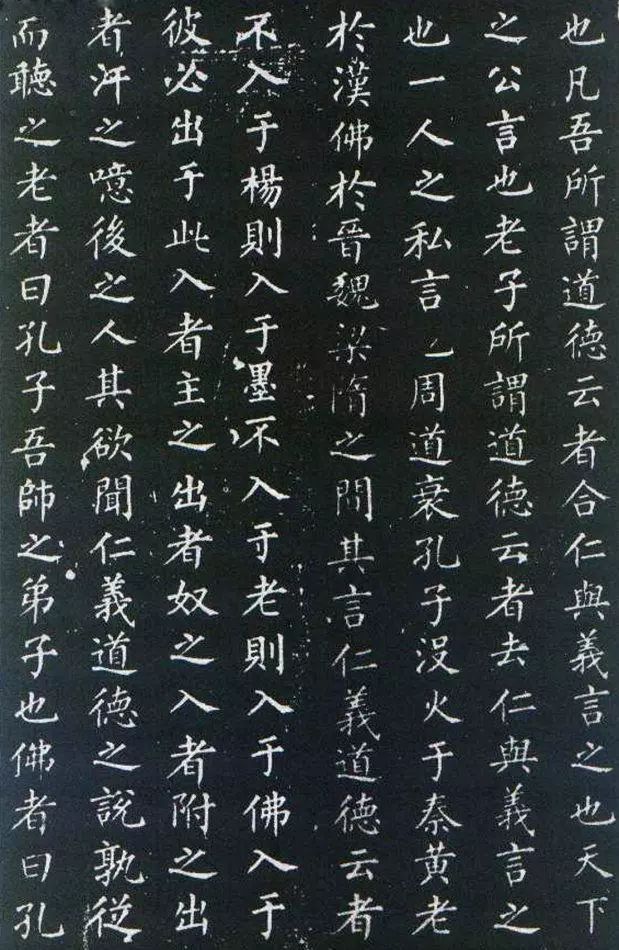 也凡吾所謂道德云者合仁與義言之也天下
之公言也老子所謂道德云者去仁與義言之
也一人之私言周道衰孔子沒火于秦黄老
於漢佛於晉魏梁隋之間其言仁義道德云者
不入于楊則入于墨不入于老則入于佛入于
彼必出于此入者主之出者奴之入者附之出
者汙之噫後之人其欲聞仁義道德之說孰從
而聽之老者曰孔子吾師之弟子也佛者曰孔